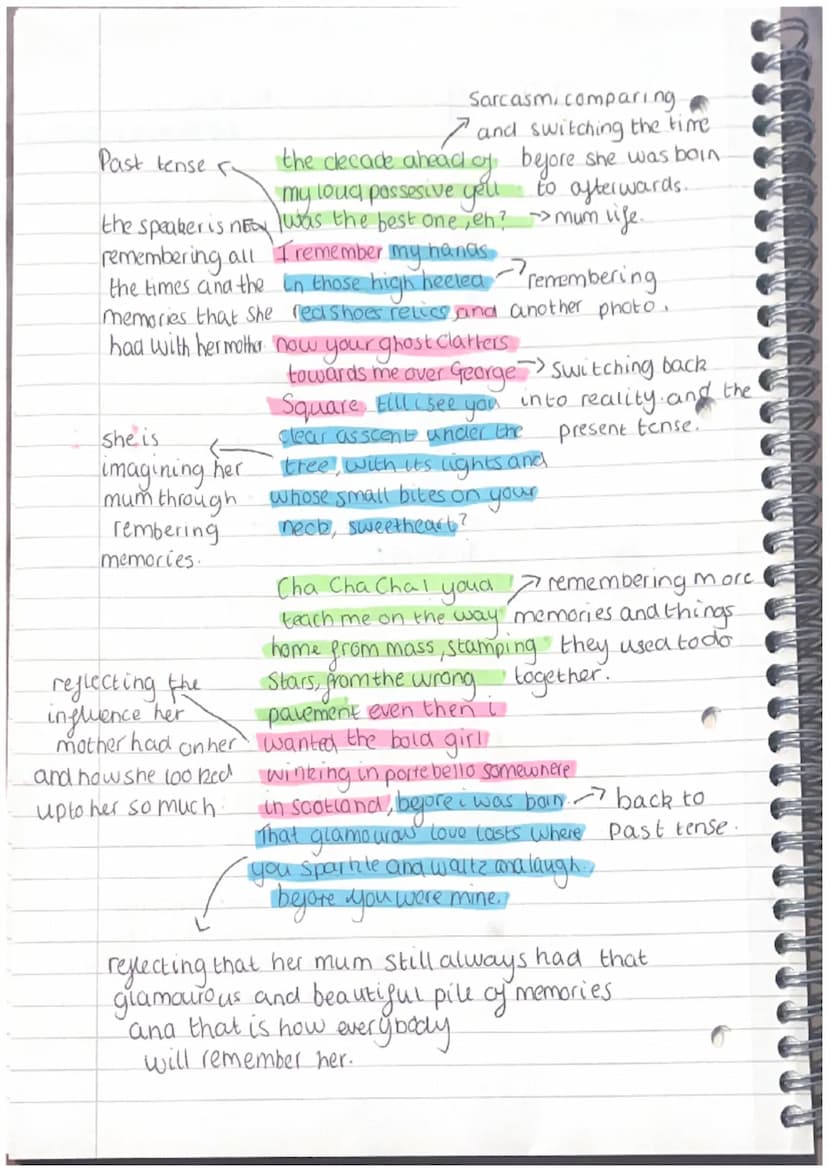 Sarcasm, comparing
and switching the time
before she was born
to afterwards.
→ mum life.
Past tense
the decade ahead of
my loud possesive yell
was the best one, eh?
the speaker is now
remembering all
the times and the
memories that she
had with her mother.
I remember my hands
in those high heeled
red shoes relics, and
remembering
another photo.
now your ghost clatters
towards me over George
Square till i see you
→ switching back
into reality and the
present tense.
clear as scent under the
tree, with its lights and
whose small bites on your
neck, sweetheart?
she is
imagining her
mum through
rembering
memories.
Cha Cha Cha! youd
teach me on the way
home from mass, stamping
stars, from the wrong
pavement even then i
remembering more
memories and things
they used to do
together.
wanted the bold girl
winking in portebello somewhere
in scotland, before i was born.
reflecting the
influence her
mother had on her
and how she looked
up to her so much
back to
past tense.
That glamourous love lasts where
you sparkle and waltz and laugh
before you were mine.
reflecting that her mum still always had that
glamourous and beautiful pile of memories
and that is how everybody
will remember her.